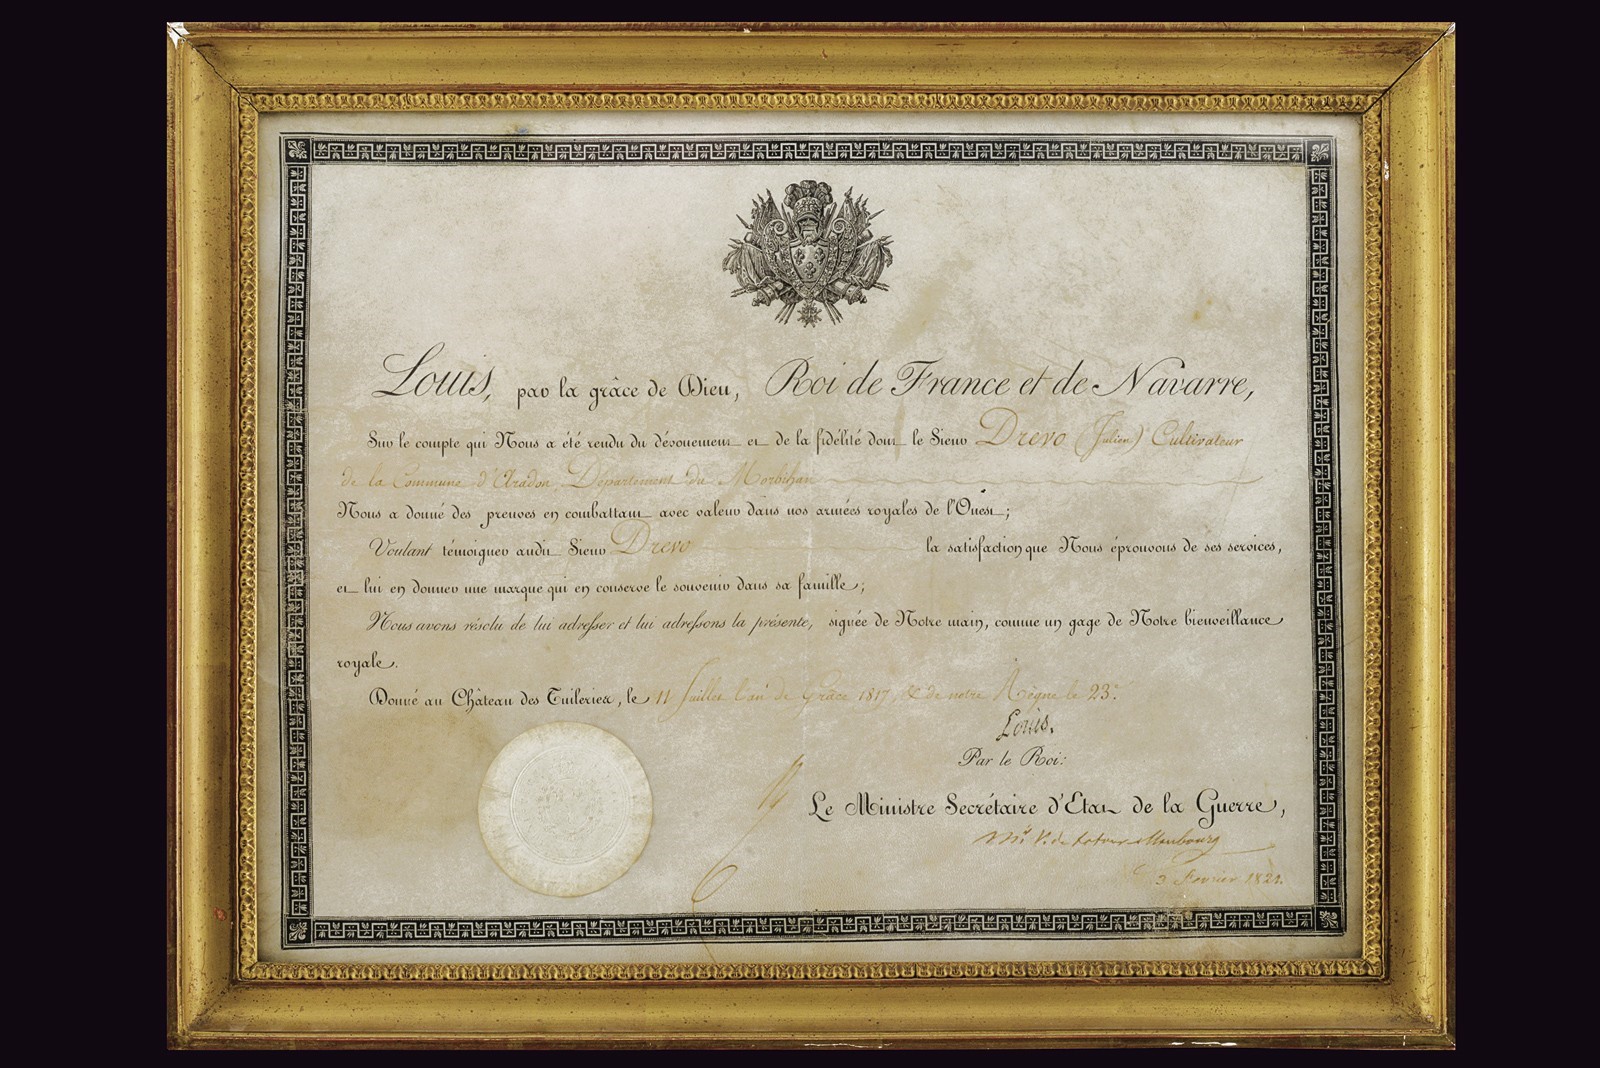 Louis, par la grâce de Dieu, Roi de France et de Navarre,
Sur le compte qui Nous a été rendu du dévouement et de la fidélité dont le Sieur Drevo (Julien) Cultivateur
de la Commune d'Aradon, Département du Morbihan
Nous a donné des preuves en combattant avec valeur dans nos armées royales de l'Ouest;
Voulant témoigner audit Sieur Drevo la satisfaction que Nous éprouvons de ses services,
et lui en donner une marque qui en conserve le souvenir dans sa famille;
Nous avons résolu de lui adresser et lui adressons la présente, signée de Notre main, comme un gage de Notre bienveillance
royale.
Donné au Château des Tuileries, le 11 Juillet l'an de Grâce 1817, & de notre Règne le 23.e
Louis.
Par le Roi:
Le Ministre Secrétaire d'Etat de la Guerre,
Mis V. de Latour Maubourg
3 Fevrier 1821.